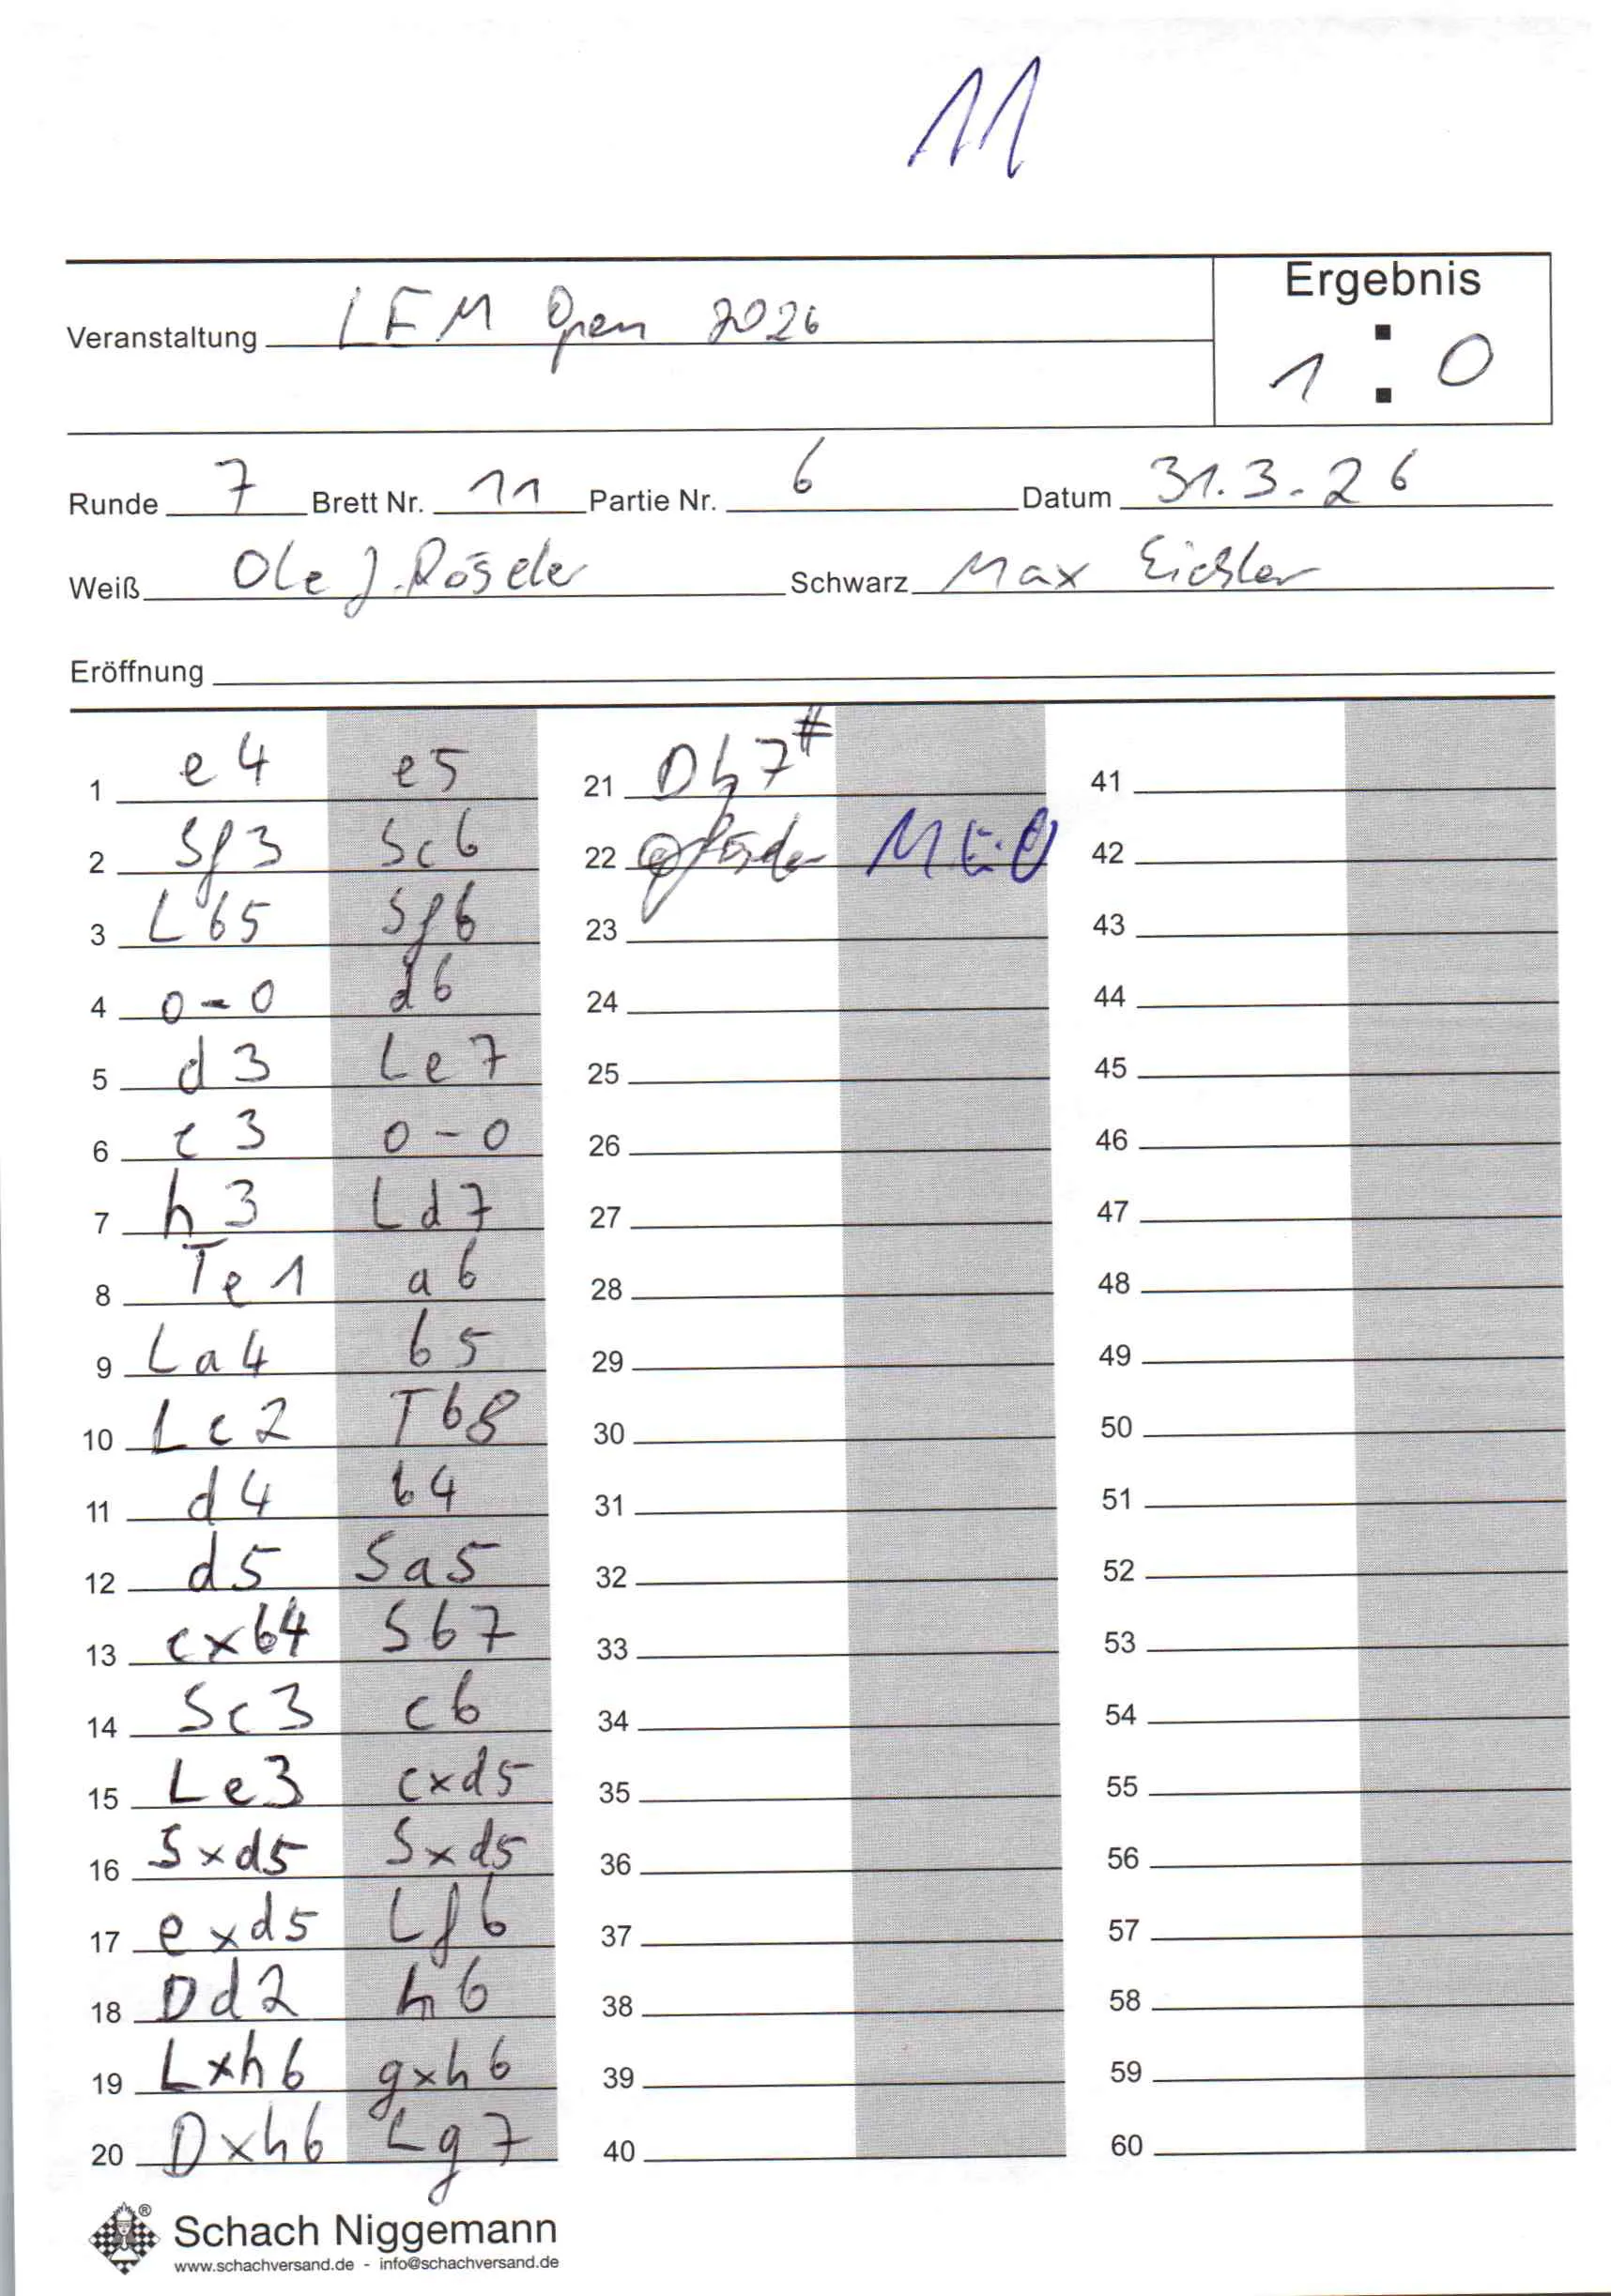 11
Ergebnis
Veranstaltung LEM Open 2026
1 : 0
Runde 7 Brett Nr. 11 Partie Nr. 6 Datum 31.3.26
Weiß Ole J. Röseler Schwarz Max Eichler
Eröffnung
1 e4 e5
2 Sf3 Sc6
3 Lb5 Sf6
4 0-0 d6
5 d3 Le7
6 c3 0-0
7 h3 Ld7
8 Te1 a6
9 La4 b5
10 Lc2 Tb8
11 d4 b4
12 d5 Sa5
13 cxb4 Sb7
14 Sc3 c6
15 Le3 cxd5
16 Sxd5 Sxd5
17 exd5 Lf6
18 Dd2 h6
19 Lxh6 gxh6
20 Dxh6 Lg7
21 Dh7#
22
23
24
25
26
27
28
29
30
31
32
33
34
35
36
37
38
39
40
41
42
43
44
45
46
47
48
49
50
51
52
53
54
55
56
57
58
59
60
®
Schach Niggemann
www.schachversand.de - info@schachversand.de